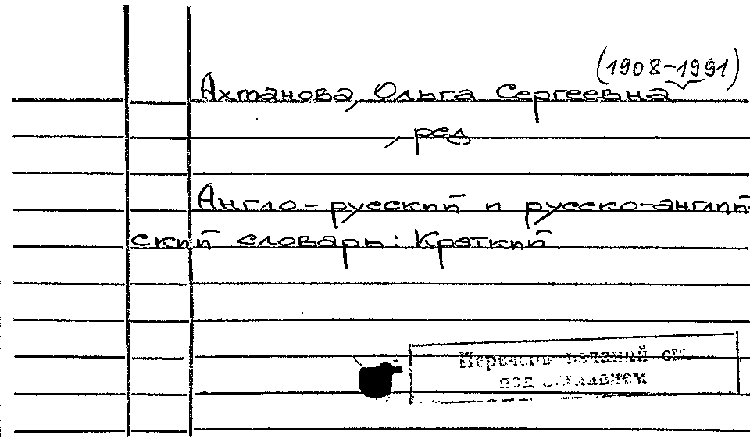 (1908-1991)
Ахманова, Ольга Сергеевна
, ред
Англо-русский и русско-англий
ский словарь: Краткий
Перечень изданий см.
под заглавием